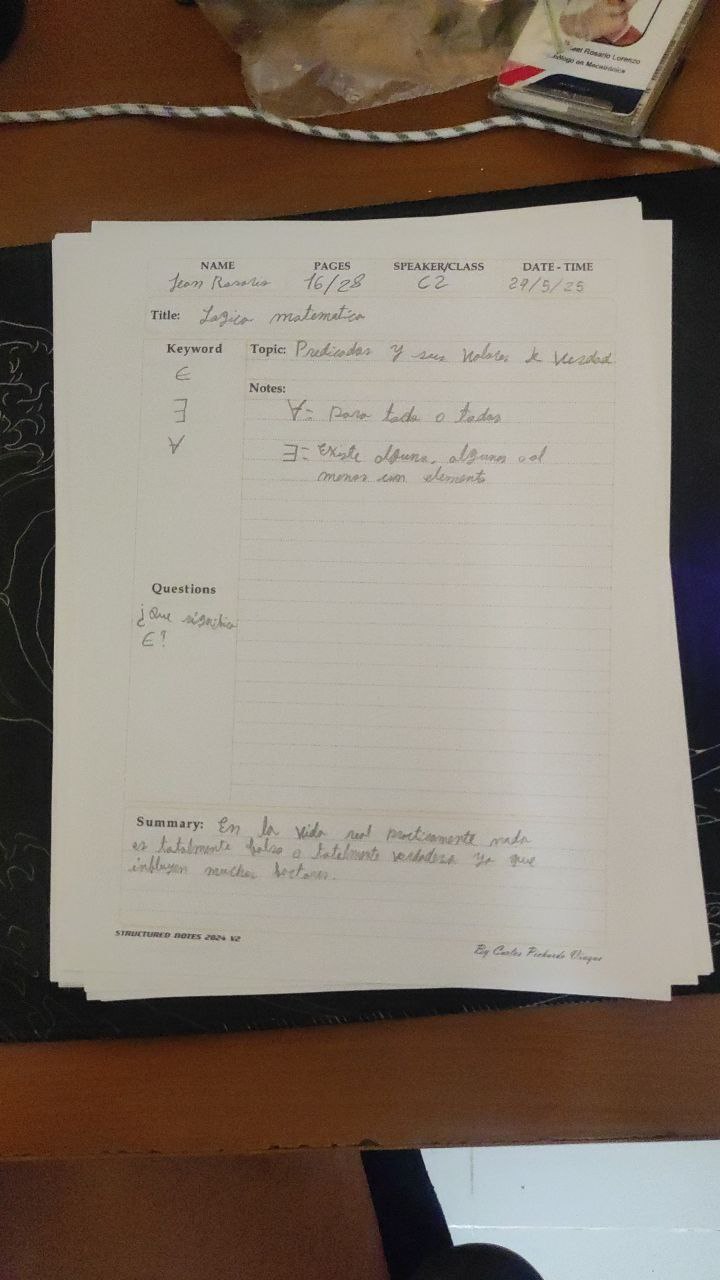 el Rosario Lorenzo
ólogo en Mecatrónica
NAME PAGES SPEAKER/CLASS DATE - TIME
Jean Rosario 16/28 C2 29/5/25
Title: Logica matematica
Keyword
∈
∃
∀
Topic: Predicados y sus valores de verdad
Notes:
∀= para todo o todos
∃= Existe alguno, algunos o al
menos un elemento
Questions
¿Que significa
∈?
Summary: En la vida real practicamente nada
es totalmente falso o totalmente verdadero ya que
influyen muchos factores.
STRUCTURED NOTES 2024 V2
By Carlos Pichardo Viuque